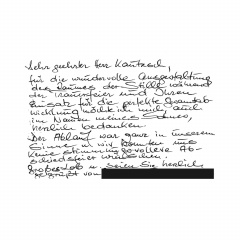 Sehr geehrter Herr Kautzsch,
für die wundervolle Ausgestaltung
des Raumes der Stille während
der Trauerfeier und Ihren
Einsatz für die perfekte Gesamtab-
wicklung möchte ich mich, auch
im Namen meines Sohnes,
herzlich bedanken.
Der Ablauf war ganz in unserem
Sinne u. wir konnten uns
keine stimmungsvollere Ab-
schiedsfeier wünschen.
Großes Lob u. seien Sie herzlich
gegrüßt von